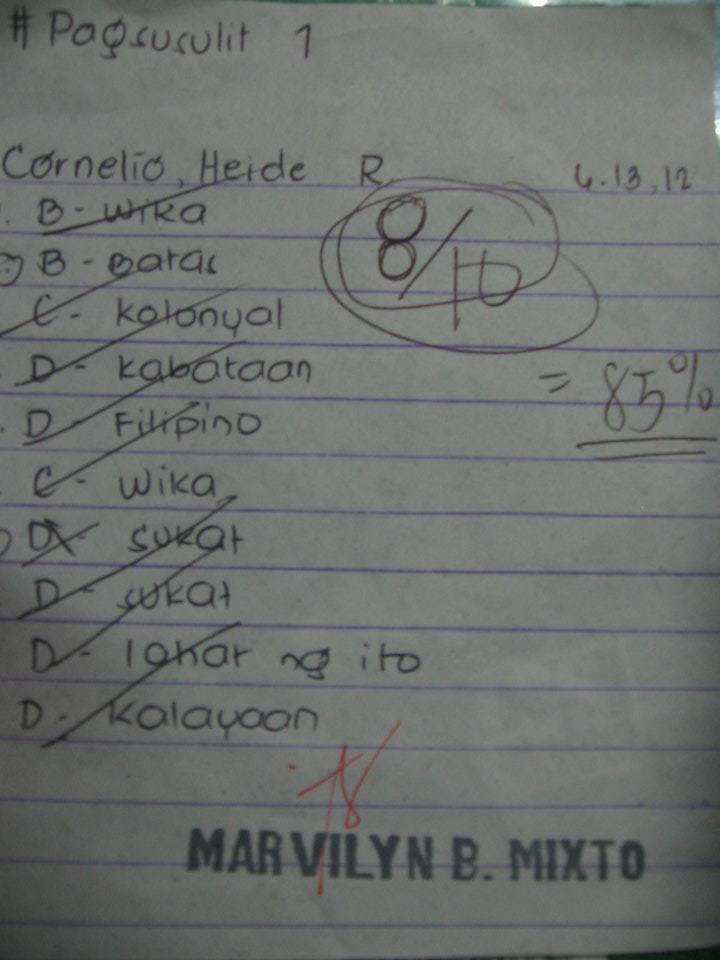 # Pagsusulit 1
Cornelio, Heide R. 6.13.12
. B - wika
B - Batas
8/10
C - kolonyal
D - kabataan
= 85%
. D - Filipino
C - wika
D - sukat
D - sukat
D - lahat ng ito
D - kalayaan
MARVILYN B. MIXTO